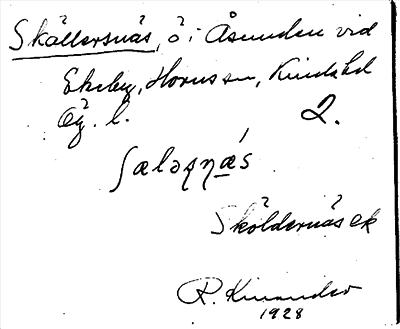 Skällersnäs, ö i Åsunden vid
Ekeby, Horns sn, Kinds hd
Ög. l. 2.
ʃæləʂnǽs
Sköldernäs ek
R. Kinander
1928